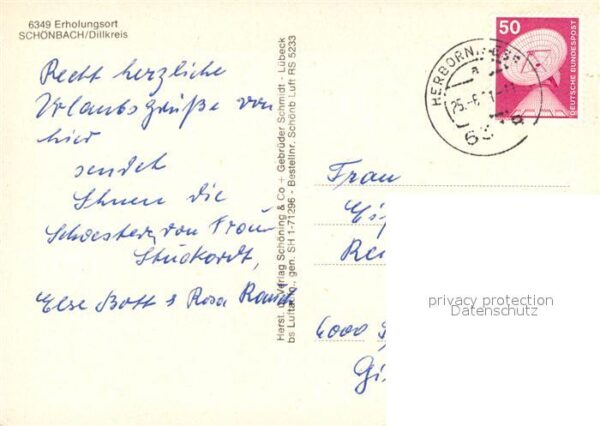 6349 Erholungsort
SCHÖNBACH/Dillkreis
Recht herzliche
Urlaubsgrüße von
hier
sendet
Ihnen die
Schwestern von Frau
Stuckardt,
Else Bott & Rosa
Herst. u. Verlag Schöning & Co + Gebrüder Schmidt - Lübeck
bs Luftaufn. gen. SH 1-71296 - Bestellnr. Schönb Luft RS 5233
50
DEUTSCHE BUNDESPOST
HERBORN, HESS
a
25.-6.
Frau
6000
privacy protection
Datenschutz